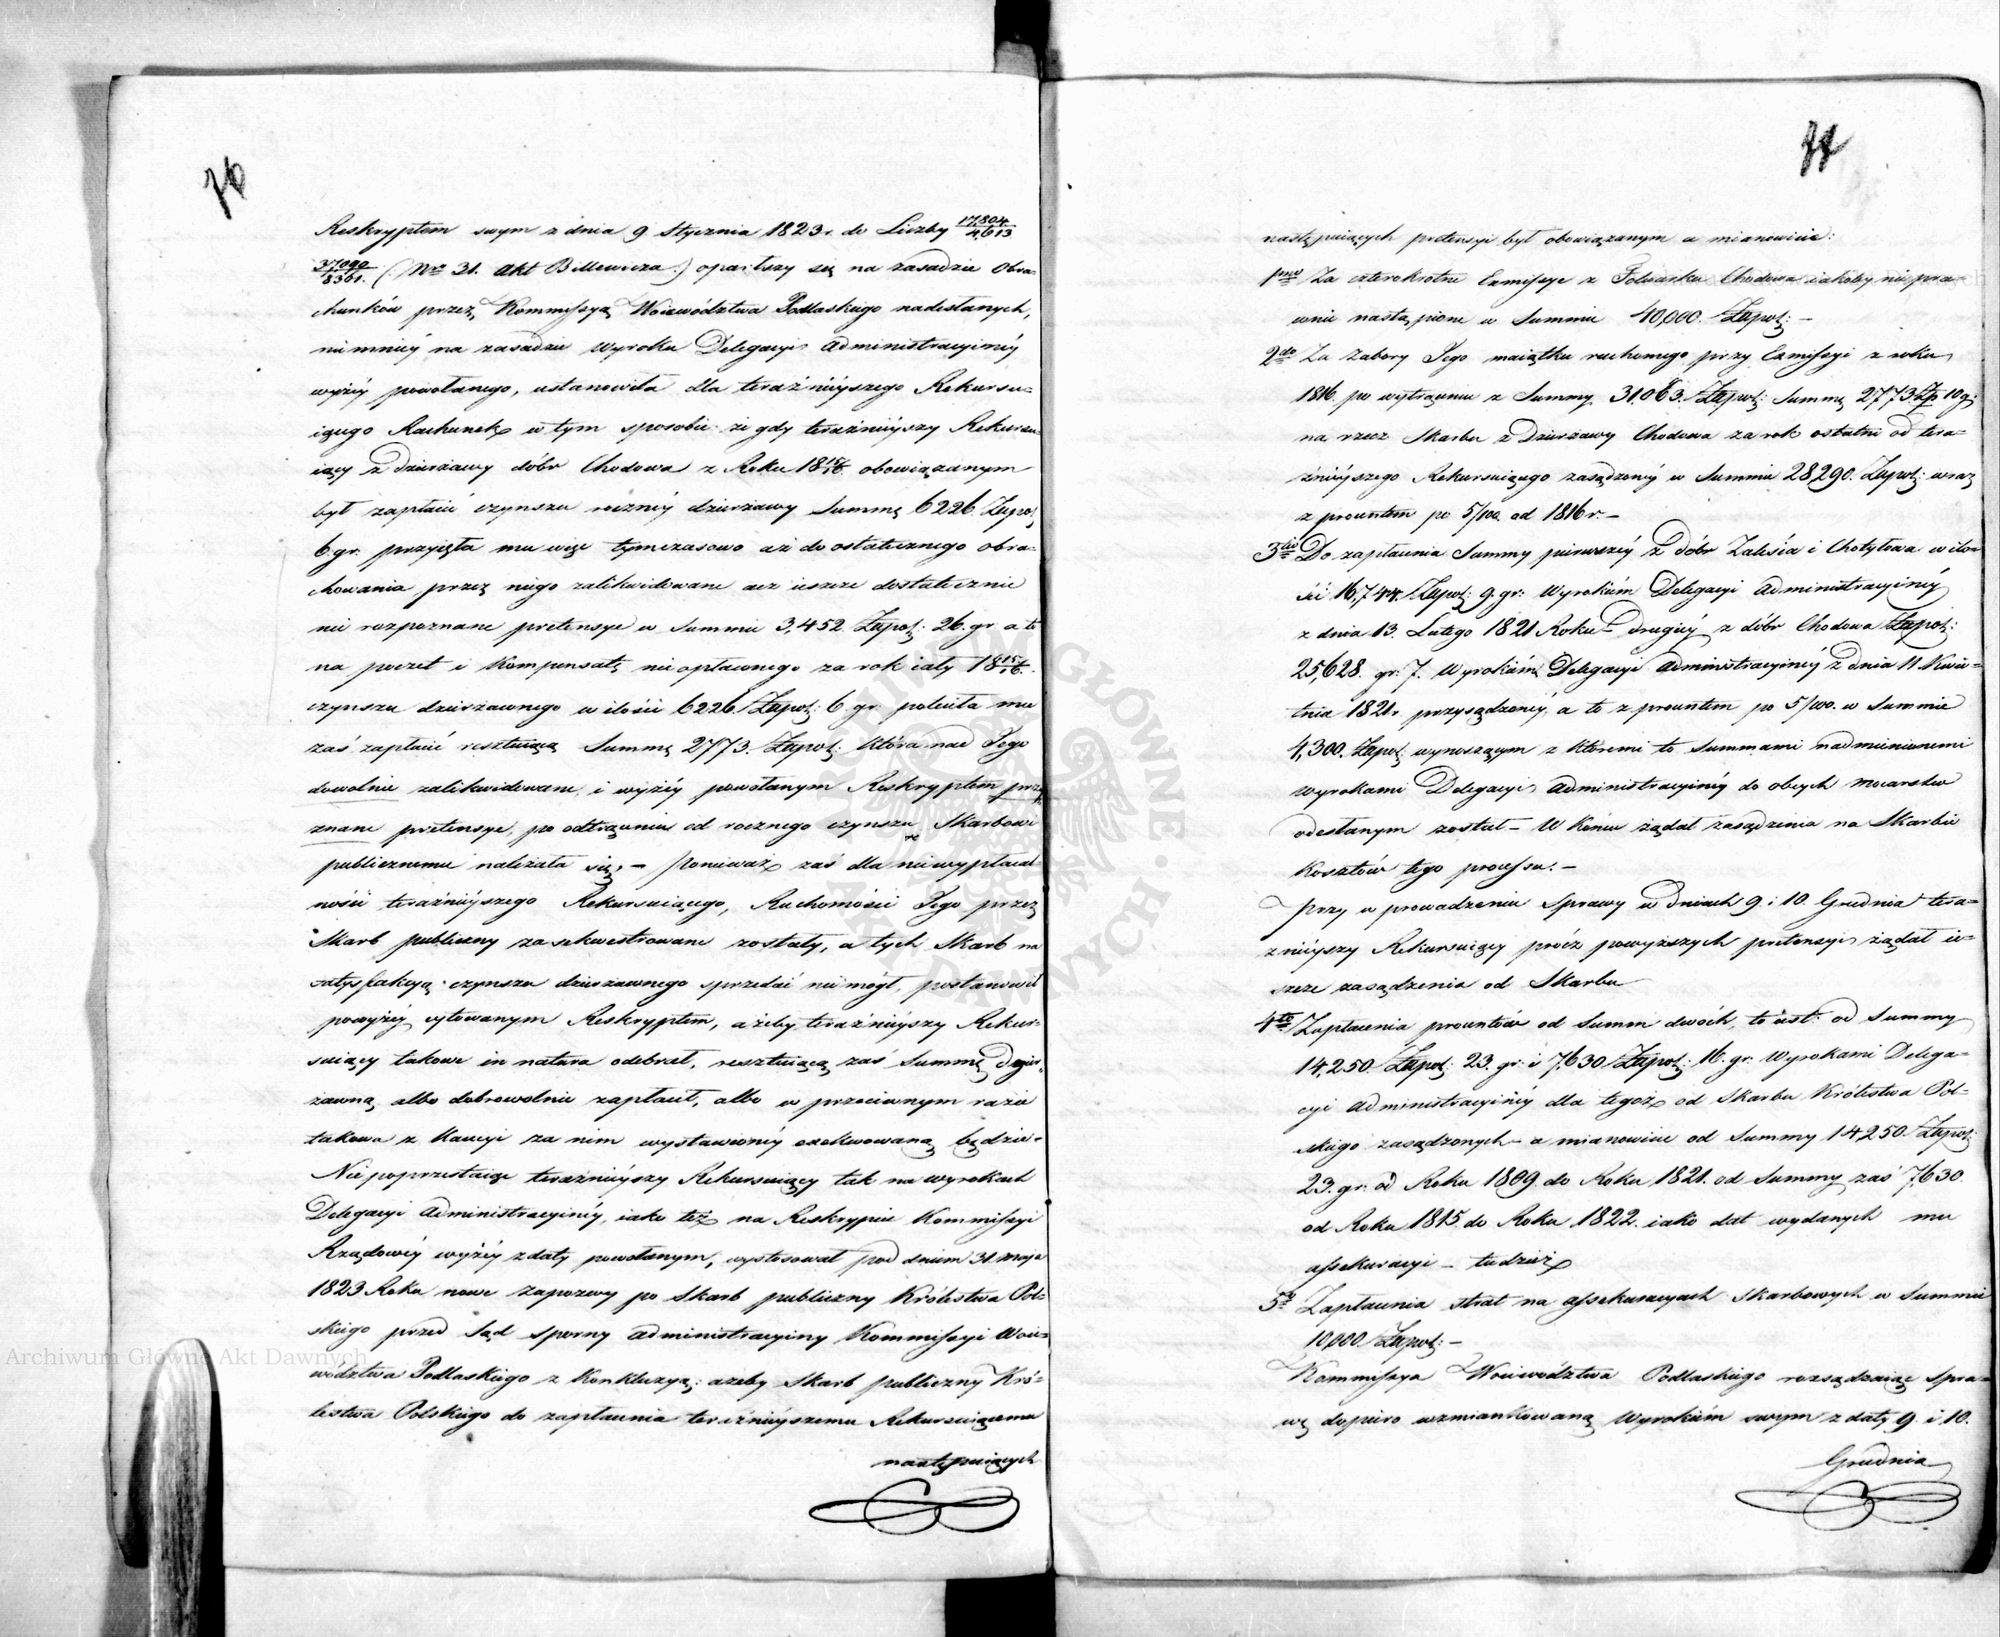 76
Reskryptem swym z dnia 9 Stycznia 1823 r. do Liczby 17,804/4,613
37090/8361. (Nro 31. Akt Billewicza.) oparłszy się na zasadzie Obra-
chunków przez Kommissyą Woiewództwa Podlaskiego nadesłanych,
niemniéy na zasadzie Wyroku Delegacyi Administracyinéy
wyżéy powołanego, ustanowiła dla teraźnieyszego Rekursu-
iącego Rachunek w tym sposobie: że gdy teraźnieyszy Rekursu-
iący z Dzierżawy dóbr Chodowa z Roku 1815/16. obowiązanym
był zapłacić czynszu roczniey dzierżawy Summę 6226. Złpol:
6. gr. przyięła mu więc tymczasowo aż do ostatecznego obra-
chowania przez niego zalikwidowane acz ieszcze dostatecznie
nie rozpoznane pretensye w Summie 3,452. Złpol: 26. gr. a to
na poczet i kompensatę nieopłaconego za rok cały 1815/16.
czynszu dzierżawnego w ilości 6226 Złpol: 6. gr. poleciła mu
zaś zapłacić resztuiącą Summę 2773. Złpol: która nad Jego
dowolnie zalikwidowane, i wyżéy powołanym Reskryptem przy
znane pretensye, po odtrąceniu od rocznego czynszu Skarbowi
publicznemu należała się. – Ponieważ zaś dla niewypłacal-
ności teraźnieyszego Rekursuiącego, Ruchomości Jego przez
Skarb publiczny zasekwestrowane zostały, a tych Skarb na
satysfakcyą czynszu dzierżawnego sprzedać nie mógł, postanowił
powyżéy cytowanym Reskryptem, ażeby teraźnieyszy Rekur-
suiący takowe in natura odebrał, resztuiącą zaś Summę dzier-
żawną albo dobrowolnie zapłacił, albo w przeciwnym razie
takowa z Kaucyi za nim wystawionéy exekwowaną będzie.
Nie poprzestaiąc teraźnieyszy Rekursuiący tak na wyrokach
Delegacyi Administracyinéy, iako też na Reskrypcie Kommissyi
Rządowéy wyżéy z daty powołanym, wystosował pod dniem 31 Maja
1823 Roku nowe zapozwy po Skarb publiczny Królestwa Pol-
skiego przed Sąd sporny Administracyiny Kommissyi Woie-
wództwa Podlaskiego z Konkluzyą: ażeby Skarb publiczny Kró-
lestwa Polskiego do zapłacenia teraźnieyszemu Rekursuiącemu
następuiących
77
następuiących pretensyi był obowiązanym a mianowicie:
1mo Za czterokrotne Exmissye z Folwarku Chodowa iakoby niepra-
wnie nastąpione w Summie 40,000. Złpol: –
2do Za zabory Jego maiątku ruchomego przy Exmissyi z roku
1816. po wytrąceniu z Summy 31,063. Złpol: Summę 2773. Złp 10 g:
na rzecz Skarbu z Dzierżawy Chodowa za rok ostatni od tera-
źnieyszego Rekursuiącego zasądzonéy w Summie 28290. Złpol: wraz
z procentem po 5/100. od 1816 r. –
3tio Do zapłacenia Summy pierwszéy z dóbr Zalesia i Chotyłowa w ilo-
ści 16,744. Złpol: 9. gr: Wyrokiem Delegacyi Administracyinéy
z dnia 13. Lutego 1821 Roku – drugiéy z dóbr Chodowa Złpol:
25,628. gr: 7. Wyrokiem Delegacyi Administracyinéy z dnia 11 Kwie-
tnia 1821 r. przysądzonéy, a to z procentem po 5/100. w Summie
4,300. Złpol: wynoszącym z któremi to Summami nadmienionemi
wyrokami Delegacyi Administracyinéy do obcych mocarstw
odesłanym został – W końcu żądał zasądzenia na Skarbie
Kosztów tego processu. –
Przy wprowadzeniu Sprawy w dniach 9. i 10. Grudnia tera-
źnieyszy Rekursuiący prócz powyższych pretensyi żądał ie-
szcze zasądzenia od Skarbu
4to Zapłacenia procentów od Summ dwóch, to iest: od Summy
14,250. Złpol: 23. gr: i 7,630 Złpol: 16. gr. Wyrokami Delega-
cyi Administracyinéy dla tegoż od Skarbu Królestwa Pol-
skiego zasądzonych – a mianowicie od Summy 14250. Złpol:
23. gr: od Roku 1809. do Roku 1821. od Summy zaś 7,630.
od Roku 1815. do Roku 1822. iako dat wydanych mu
assekuracyi – tudzież
5to Zapłacenia strat na assekuracyach Skarbowych w Summie
10,000. Złpol: –
Kommissya Woiewództwa Podlaskiego rozsądzaiąc Spra-
wę dopiero wzmiankowaną Wyrokiem swym z daty 9. i 10.
Grudnia
Archiwum Główne Akt Dawnych